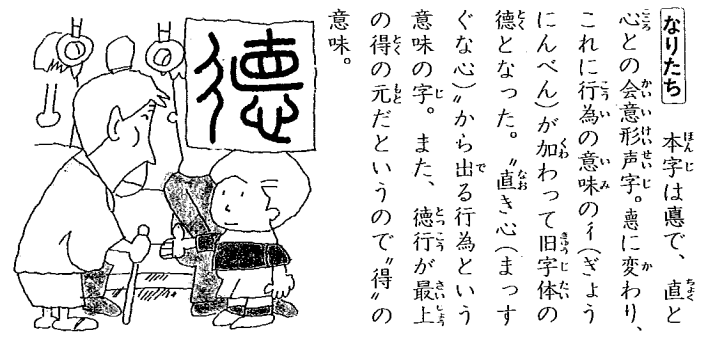 なりたち
本字は悳で、直と
心との会意形声字。惪に変わり、
これに行為の意味の彳(ぎょう
にんべん)が加わって旧字体の
德となった。〝直き心(まっす
ぐな心)〟から出る行為という
意味の字。また、徳行が最上
の得の元だというので〝得〟の
意味。
德